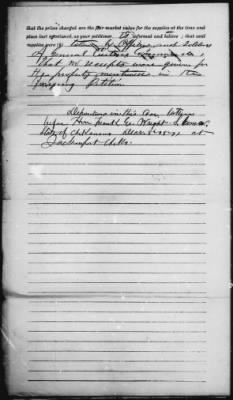 that the prices charged are the fair market value for the supplies at the time and
place last aforesaid, as your petitioner is informed and believe; that said
supplies were taken by Officers and Soldiers
of General Command
That no receipts were given for
the property mentioned in the
foregoing Petition
Depositions in this Case taken
before Hon Frank G. Wright
State of Arkansas at
Jacksonport Arks.